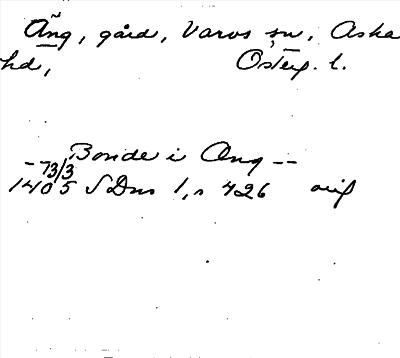 Äng, gård, Varvs sn, Aska
hd, Österg. l.
-- Bonde i Ang --
73/3
1405 SDns 1, s 426 orig